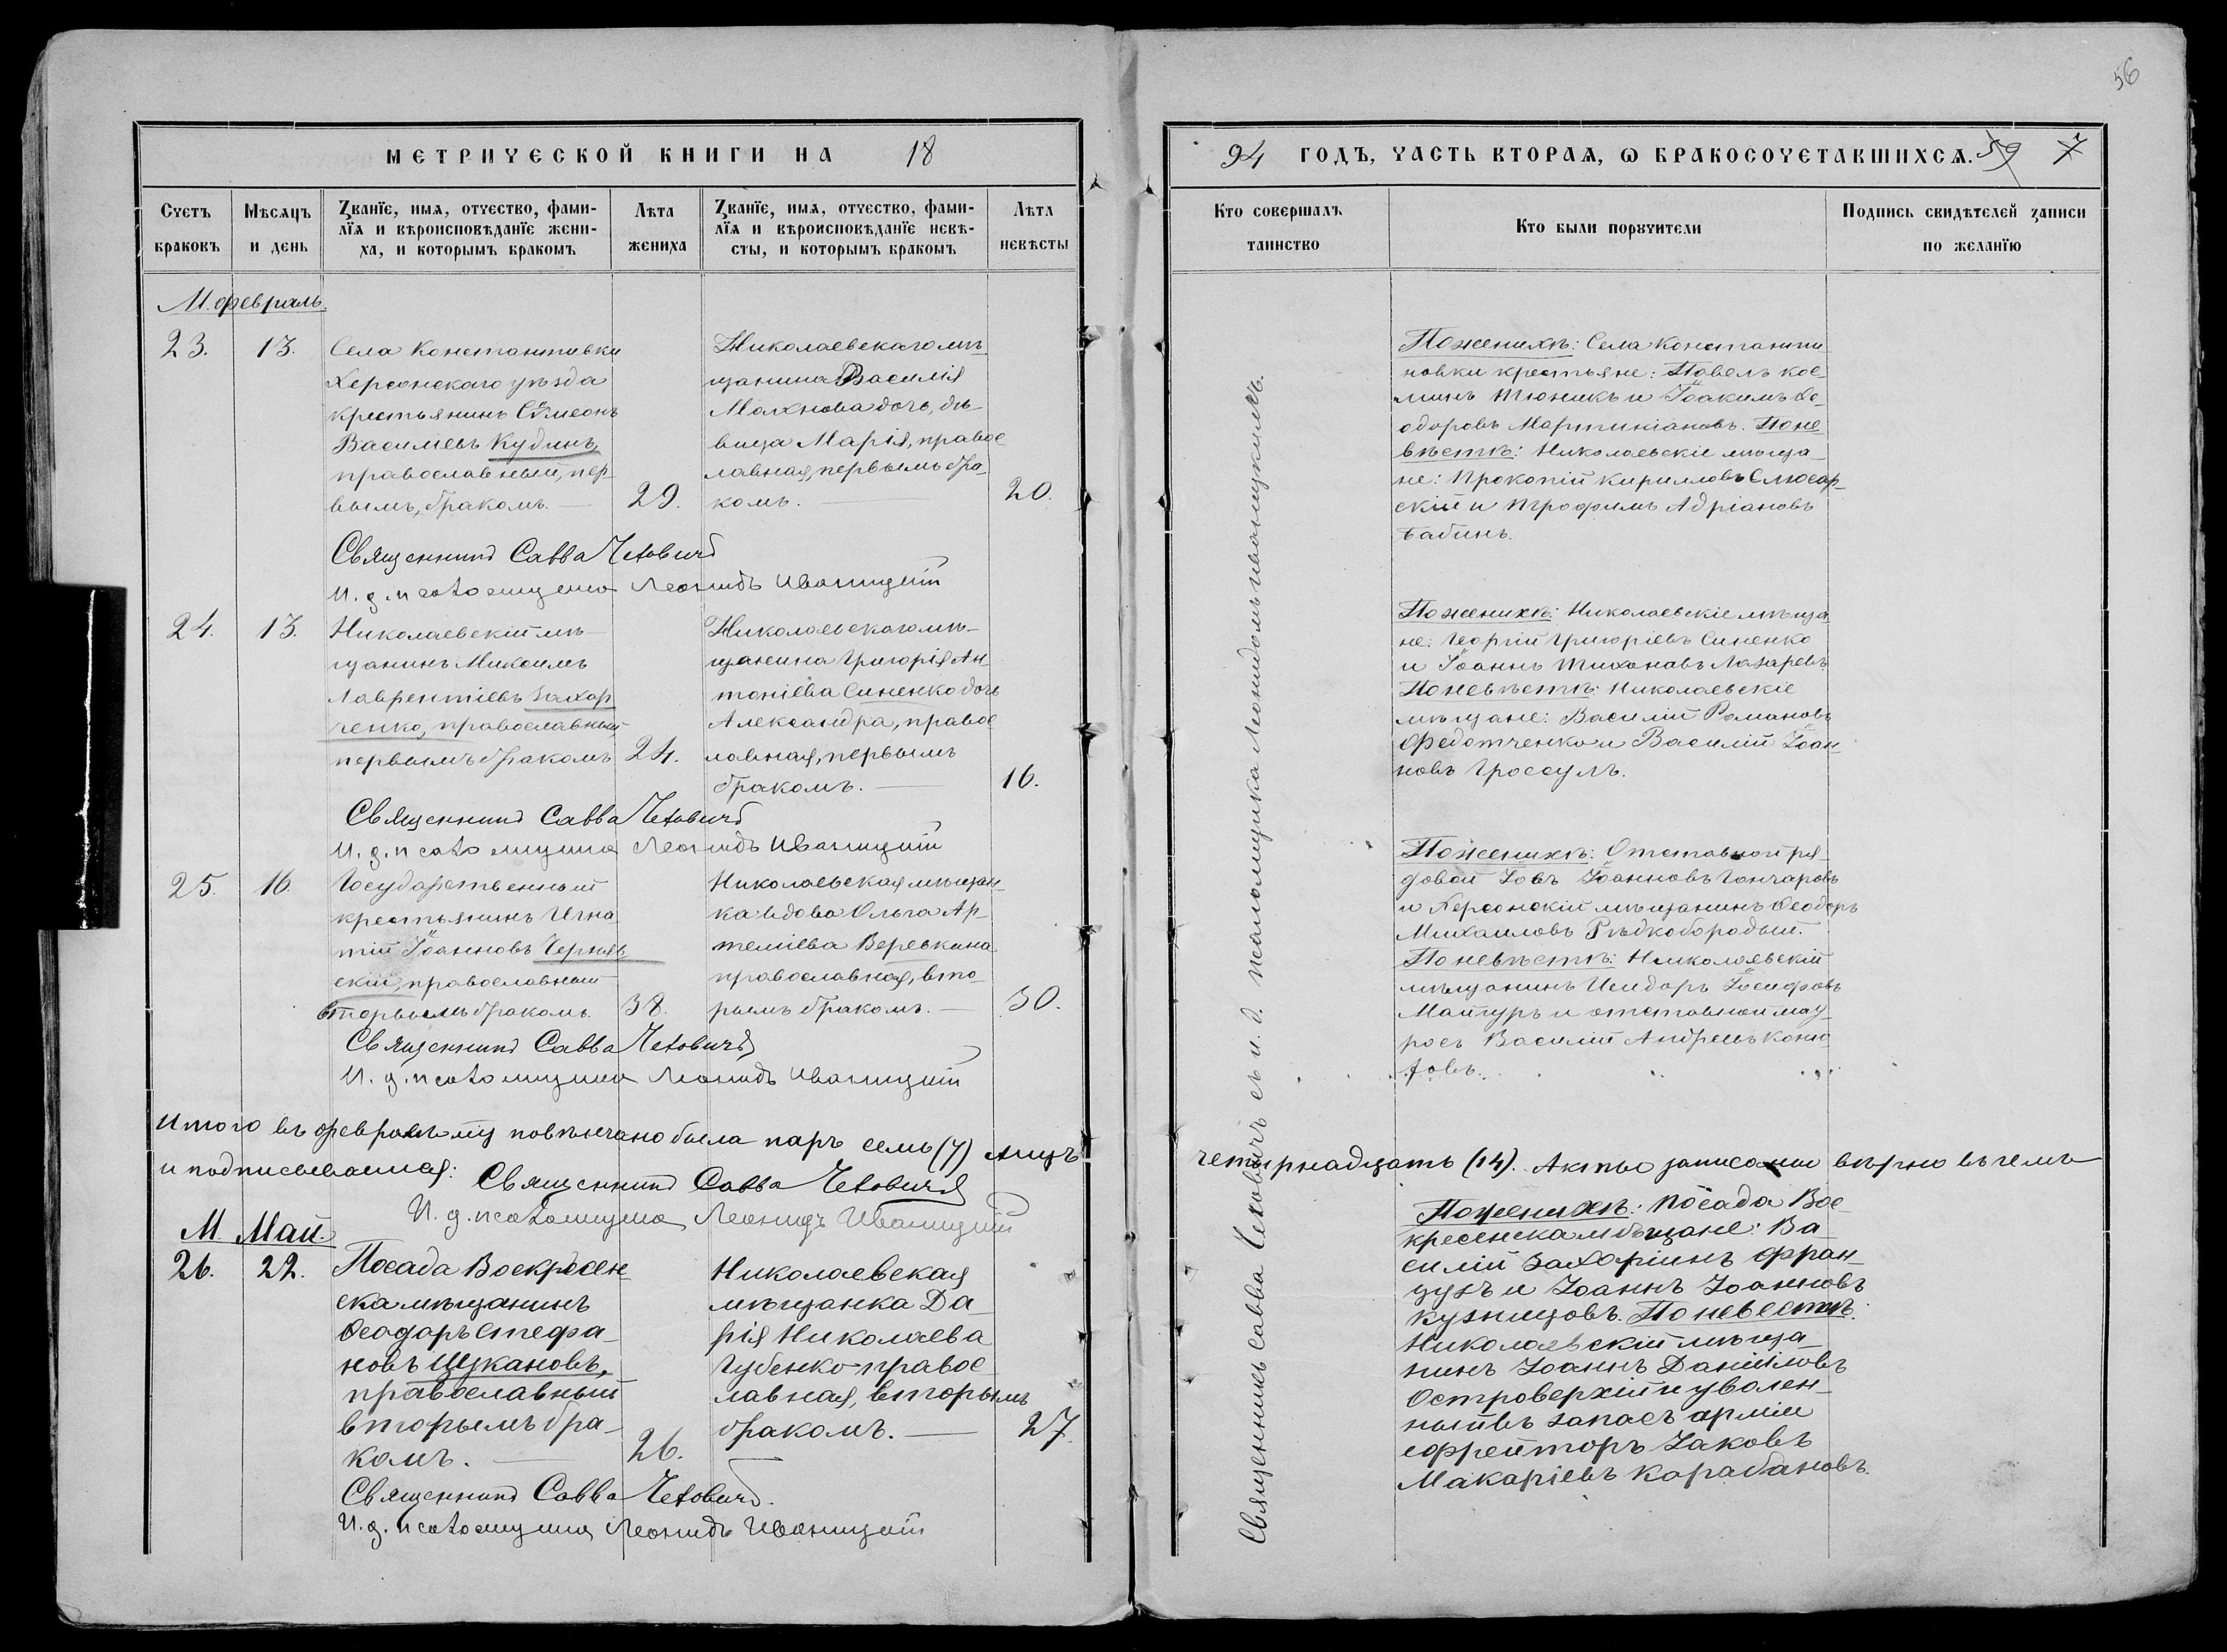 56
МЕТРИЧЕСКОЙ КНИГИ НА 18
94 ГОДЪ, ЧАСТЬ ВТОРАЯ, Ѡ БРАКОСОЧЕТАВШИХСЯ. 59 7
Счетъ браковъ
Мѣсяцъ и день
Званїе, имя, отчество, фами-
лїя и вѣроисповѣданїе жени-
ха, и которымъ бракомъ
Лѣта жениха
Званїе, имя, отчество, фами-
лїя и вѣроисповѣданїе невѣ-
сты, и которымъ бракомъ
Лѣта невѣсты
Кто совершалъ таинство
Кто были поручители
Подпись свидѣтелей записи
по желанїю
М. февраль.
23. 13.
Села Константиновки
Херсонскаго уѣзда
крестьянинъ Сѵмеонъ
Василіевъ Кудинъ,
православный, пер-
вымъ, бракомъ.
29.
Николаевскаго мѣ-
щанина Василія
Молхнова дочь, дѣ-
вица Марія, правос
лавная, первымъ бра
комъ.
20.
По женихѣ: Села Константи
новки крестьяне: Павелъ Кос-
минъ Тюникъ и Іоакимъ Ѳе-
одоровъ Мартиніановъ. По не
вѣстѣ: Николаевскіе мѣща-
не: Прокопій Кирилловъ Слюсар-
скій и Трофимъ Адріановъ
Бабинъ.
Священникъ Савва Чеховичъ
И. д. псаломщика Леонидъ Иваницкій
24. 13.
Николаевскій мѣ-
щанинъ Михаилъ
Лаврентіевъ Захар
ченко, православный
первымъ бракомъ
24.
Николаевскаго мѣ-
щанина Григорія Ан
тоніева Синенко дочь
Александра, правос
лавная, первымъ
бракомъ.
16.
По женихѣ: Николаевскіе мѣща
не: Георгій Григоріевъ Синенко
и Іоаннъ Тихоновъ Лазаревъ
По невѣстѣ: Николаевскіе
мѣщане: Василій Романовъ
Федотченко и Василій Іоан-
новъ Гроссулъ.
Священникъ Савва Чеховичъ
И. д. псаломщика Леонидъ Иваницкій
25. 16.
Государственный
крестьянинъ Игна
тій Іоанновъ Черняв
скій, православный
вторымъ бракомъ.
38.
Николаевская мѣщан-
ка вдова Ольга Ар-
теміева Веревкина
православная, вто-
рымъ бракомъ.
30.
По женихѣ: Отставной ря-
довой Іовъ Іоанновъ Гончаровъ
и Херсонскій мѣщанинъ Ѳеодоръ
Михаиловъ Рѣдкобородый.
По невѣстѣ: Николаевскій
мѣщанинъ Исидоръ Іосифовъ
Майгуръ и отставной мат
росъ Василій Андреевъ
Священникъ Савва Чеховичъ
И. д. псаломщика Леонидъ Иваницкій
Итого въ февралѣ м-цѣ повѣнчано была паръ семь (7) лицъ
четырнадцать (14). Акты записаны вѣрно въ чемъ
и подписываемся: Священникъ Савва Чеховичъ
И. д. псаломщика Леонидъ Иваницкій
М Май.
26. 22.
Посада Воскресен
ска мѣщанинъ
Ѳеодоръ Стефа-
новъ Щукановъ,
православный
вторымъ бра-
комъ.
26.
Николаевская
мѣщанка Да-
рія Николаева
Губенко правос
лавная, вторымъ
бракомъ.
27
По женихѣ: Посада Вос-
кресенска мѣщане: Ва-
силій Захаріинъ Фран-
цузъ и Іоаннъ Іоанновъ
Кузнецовъ. По невестѣ:
Николаевскій мѣща-
нинъ Іоаннъ Даніиловъ
Островерхій и уволен-
ный въ запасъ арміи
ефрейторъ Іаковъ
Макаріевъ Карабановъ.
Священникъ Савва Чеховичъ.
И. д. псаломщика Леонидъ Иваницкій
Священникъ Савва Чеховичъ съ и. д. псаломщика Леонидомъ Иваницкимъ.